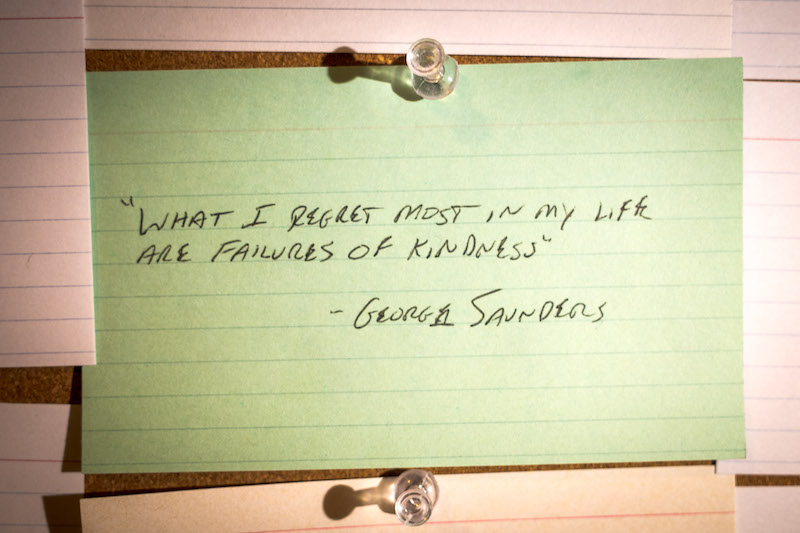 "WHAT I REGRET MOST IN MY LIFE
ARE FAILURES OF KINDNESS"
- GEORGE SAUNDERS